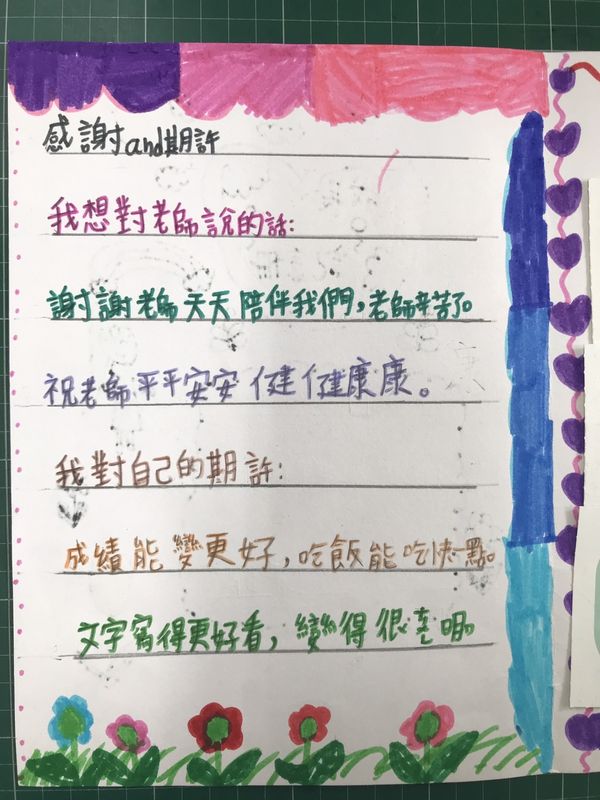 感謝and期許
我想對老師說的話:
謝謝老師天天陪伴我們,老師辛苦了。
祝老師平平安安健健康康。
我對自己的期許:
成績能變更好,吃飯能吃快一點。
文字寫得更好看,變得很聰明。